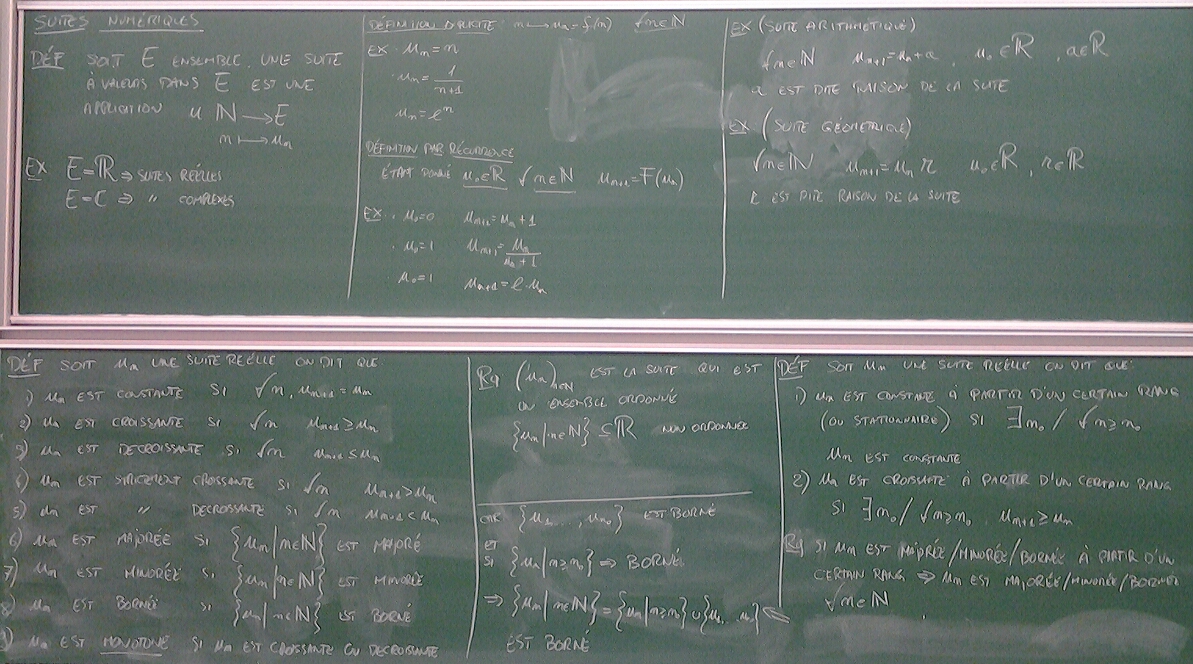 SUITES NUMÉRIQUES
DÉF SOIT E ENSEMBLE. UNE SUITE
À VALEURS DANS E EST UNE
APPLICATION u ℕ → E
n ↦ uₙ
EX E=ℝ ⇒ SUITES RÉELLES
E=ℂ ⇒ " COMPLEXES
DÉFINITION EXPLICITE n ↦ uₙ = f(n) ∀n∈ℕ
EX · uₙ = n
· uₙ = 1/(n+1)
uₙ = eⁿ
DÉFINITION PAR RÉCURRENCE
ÉTANT DONNÉ u₀∈ℝ ∀n∈ℕ uₙ₊₁ = F(uₙ)
EX · u₀=0 uₙ₊₁ = uₙ + 1
· u₀=1 uₙ₊₁ = uₙ/(uₙ+1)
u₀=1 uₙ₊₁ = e·uₙ
EX (SUITE ARITHMÉTIQUE)
∀n∈ℕ uₙ₊₁ = uₙ + a , u₀∈ℝ , a∈ℝ
a EST DITE RAISON DE LA SUITE
EX (SUITE GÉOMETRIQUE)
∀n∈ℕ uₙ₊₁ = uₙ r u₀∈ℝ , r∈ℝ
r EST DITE RAISON DE LA SUITE
DÉF SOIT uₙ UNE SUITE RÉELLE ON DIT QUE
1) uₙ EST CONSTANTE SI ∀n, uₙ₊₁ = uₙ
2) uₙ EST CROISSANTE SI ∀n uₙ₊₁ ≥ uₙ
3) uₙ EST DECROISSANTE SI ∀n uₙ₊₁ ≤ uₙ
4) uₙ EST STRICTEMENT CROISSANTE SI ∀n uₙ₊₁ > uₙ
5) uₙ EST " DECROISSANTE SI ∀n uₙ₊₁ < uₙ
6) uₙ EST MAJORÉE SI {uₙ | n∈ℕ} EST MAJORÉ
7) uₙ EST MINORÉE SI {uₙ | n∈ℕ} EST MINORÉ
8) uₙ EST BORNÉE SI {uₙ | n∈ℕ} EST BORNÉ
9) uₙ EST MONOTONE SI uₙ EST CROISSANTE OU DECROISSANTE
Rq (uₙ)ₙ∈ℕ EST LA SUITE QUI EST
UN ENSEMBLE ORDONNÉ
{uₙ | n∈ℕ} ⊆ ℝ NON ORDONNÉE
CAR {u₀, ..., uₙ₀} EST BORNÉ
ET
SI {uₙ | n≥n₀} ⇒ BORNÉ
⇒ {uₙ | n∈ℕ} = {uₙ | n≥n₀} ∪ {u₀, ..., uₙ₀}
EST BORNÉ
DÉF SOIT uₙ UNE SUITE RÉELLE ON DIT QUE:
1) uₙ EST CONSTANTE À PARTIR D'UN CERTAIN RANG
(OU STATIONNAIRE) SI ∃n₀ / ∀n≥n₀
uₙ EST CONSTANTE
2) uₙ EST CROISSANTE À PARTIR D'UN CERTAIN RANG
SI ∃n₀ / ∀n≥n₀ , uₙ₊₁ ≥ uₙ
Rq SI uₙ EST MAJORÉE/MINORÉE/BORNÉE À PARTIR D'UN
CERTAIN RANG ⇒ uₙ EST MAJORÉE/MINORÉE/BORNÉE
∀n∈ℕ